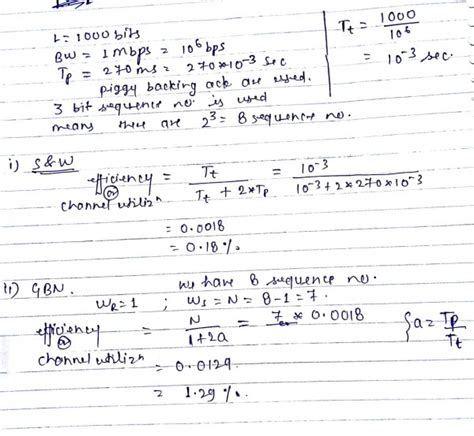 L = 1000 bits
BW = 1 Mbps = 10^6 bps
Tp = 270 ms = 270*10^-3 sec
piggy backing ack are used.
3 bit sequence no. is used
means there are 2^3 = 8 sequence no.
Tt = 1000 / 10^6
= 10^-3 sec.
i) S&W
efficiency or channel utilizn = Tt / (Tt + 2*Tp) = 10^-3 / (10^-3 + 2*270*10^-3)
= 0.0018
= 0.18 %.
ii) GBN. we have 8 sequence no.
WR = 1 ; WS = N = 8-1 = 7.
efficiency or channel utilizn = N / (1+2a) = 7 * 0.0018 { a = Tp / Tt
= 0.0129
= 1.29 %.